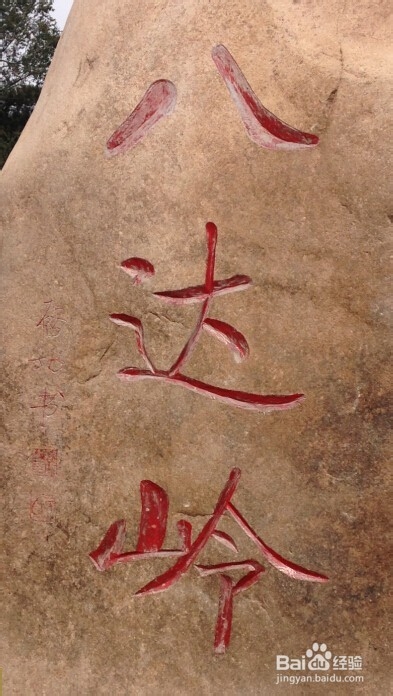 八达岭
Baidu 经验
jingyan.baidu.com